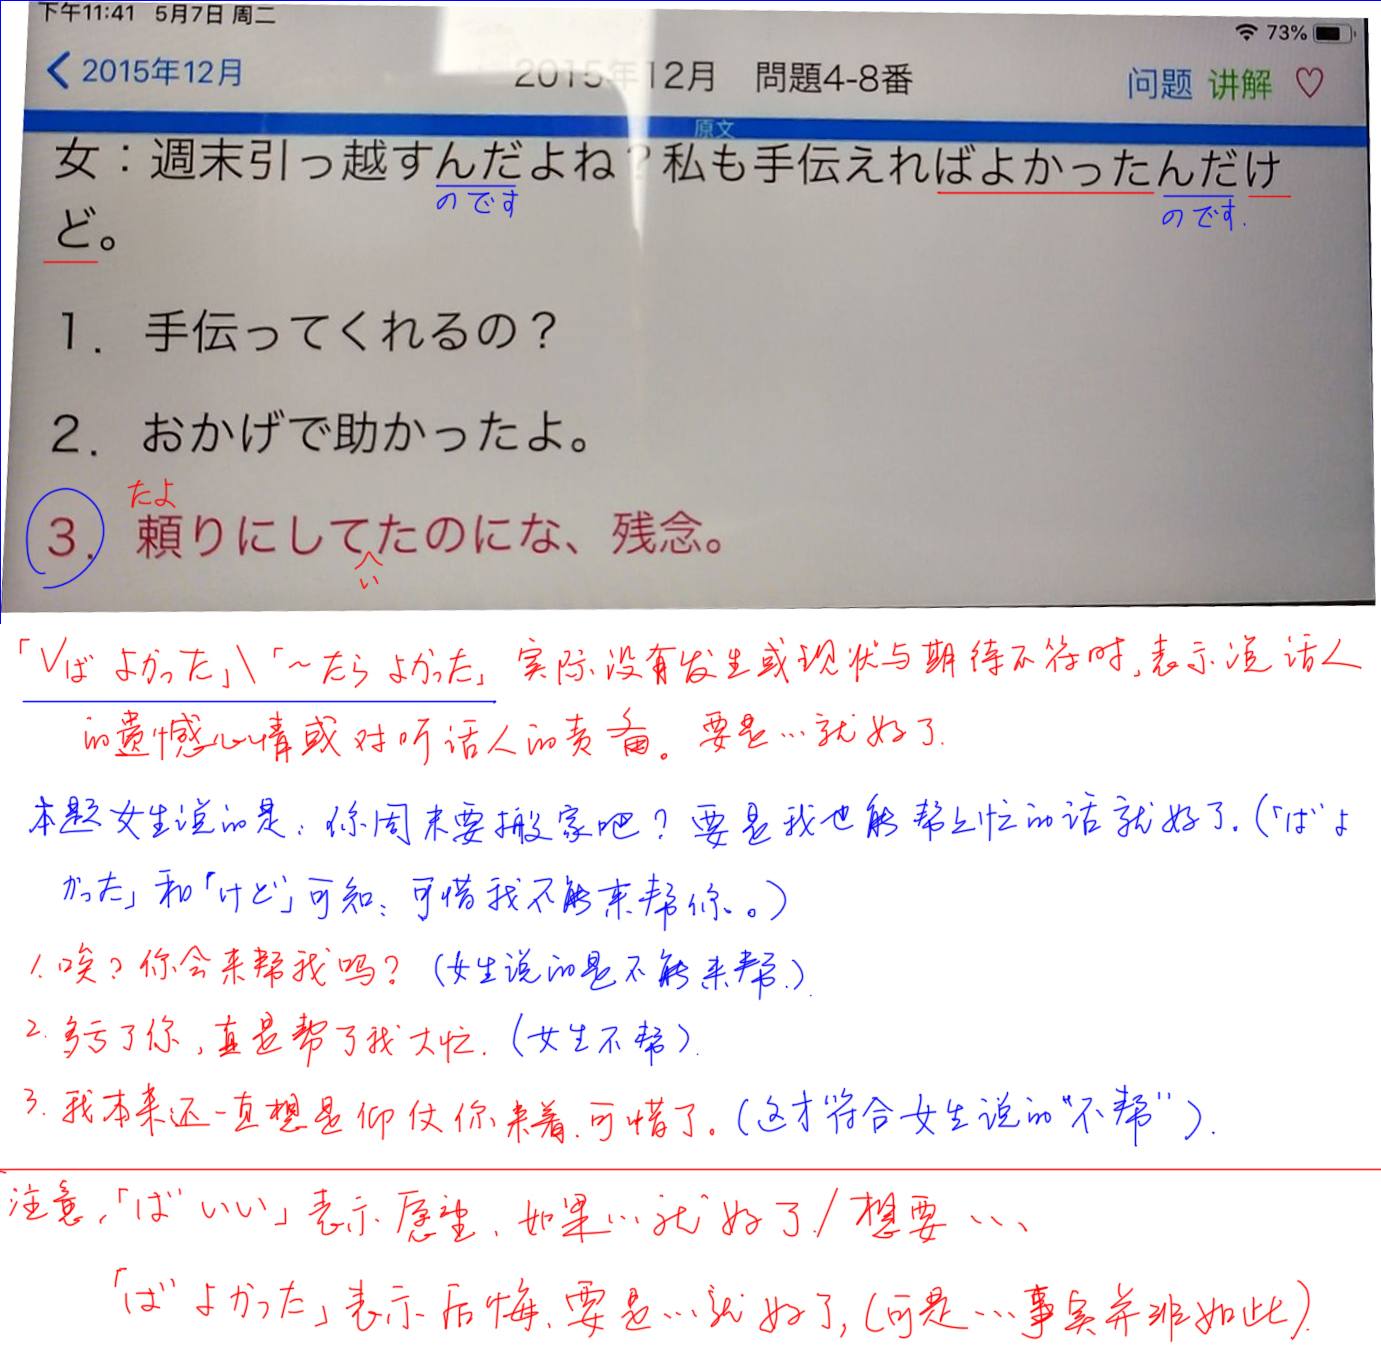 下午11:41 5月7日 周二
73%
2015年12月 2015年12月 問題4-8番 问题 讲解
原文
女：週末引っ越すんだよね？私も手伝えればよかったんだけ
のです のです.
ど。
1．手伝ってくれるの？
2．おかげで助かったよ。
たよ
3．頼りにしてたのにな、残念。
い
「Vば よかった」\「～たら よかった」 实际没有发生或现状与期待不符时,表示说话人
的遗憾心情或对听话人的责备。要是…就好了.
本题女生说的是：你周末要搬家吧？要是我也能帮上忙的话就好了。(「ばよ
かった」和「けど」可知：可惜我不能来帮你。。)
1.唉？你会来帮我吗？(女生说的是不能来帮.).
2.多亏了你,真是帮了我大忙.(女生不帮).
3.我本来还一直想是仰仗你来着.可惜了。(这才符合女生说的"不帮").
注意,「ば いい」表示愿望、如果…就好了/想要…、
「ば よかった」表示后悔、要是…就好了,(可是…事实并非如此).